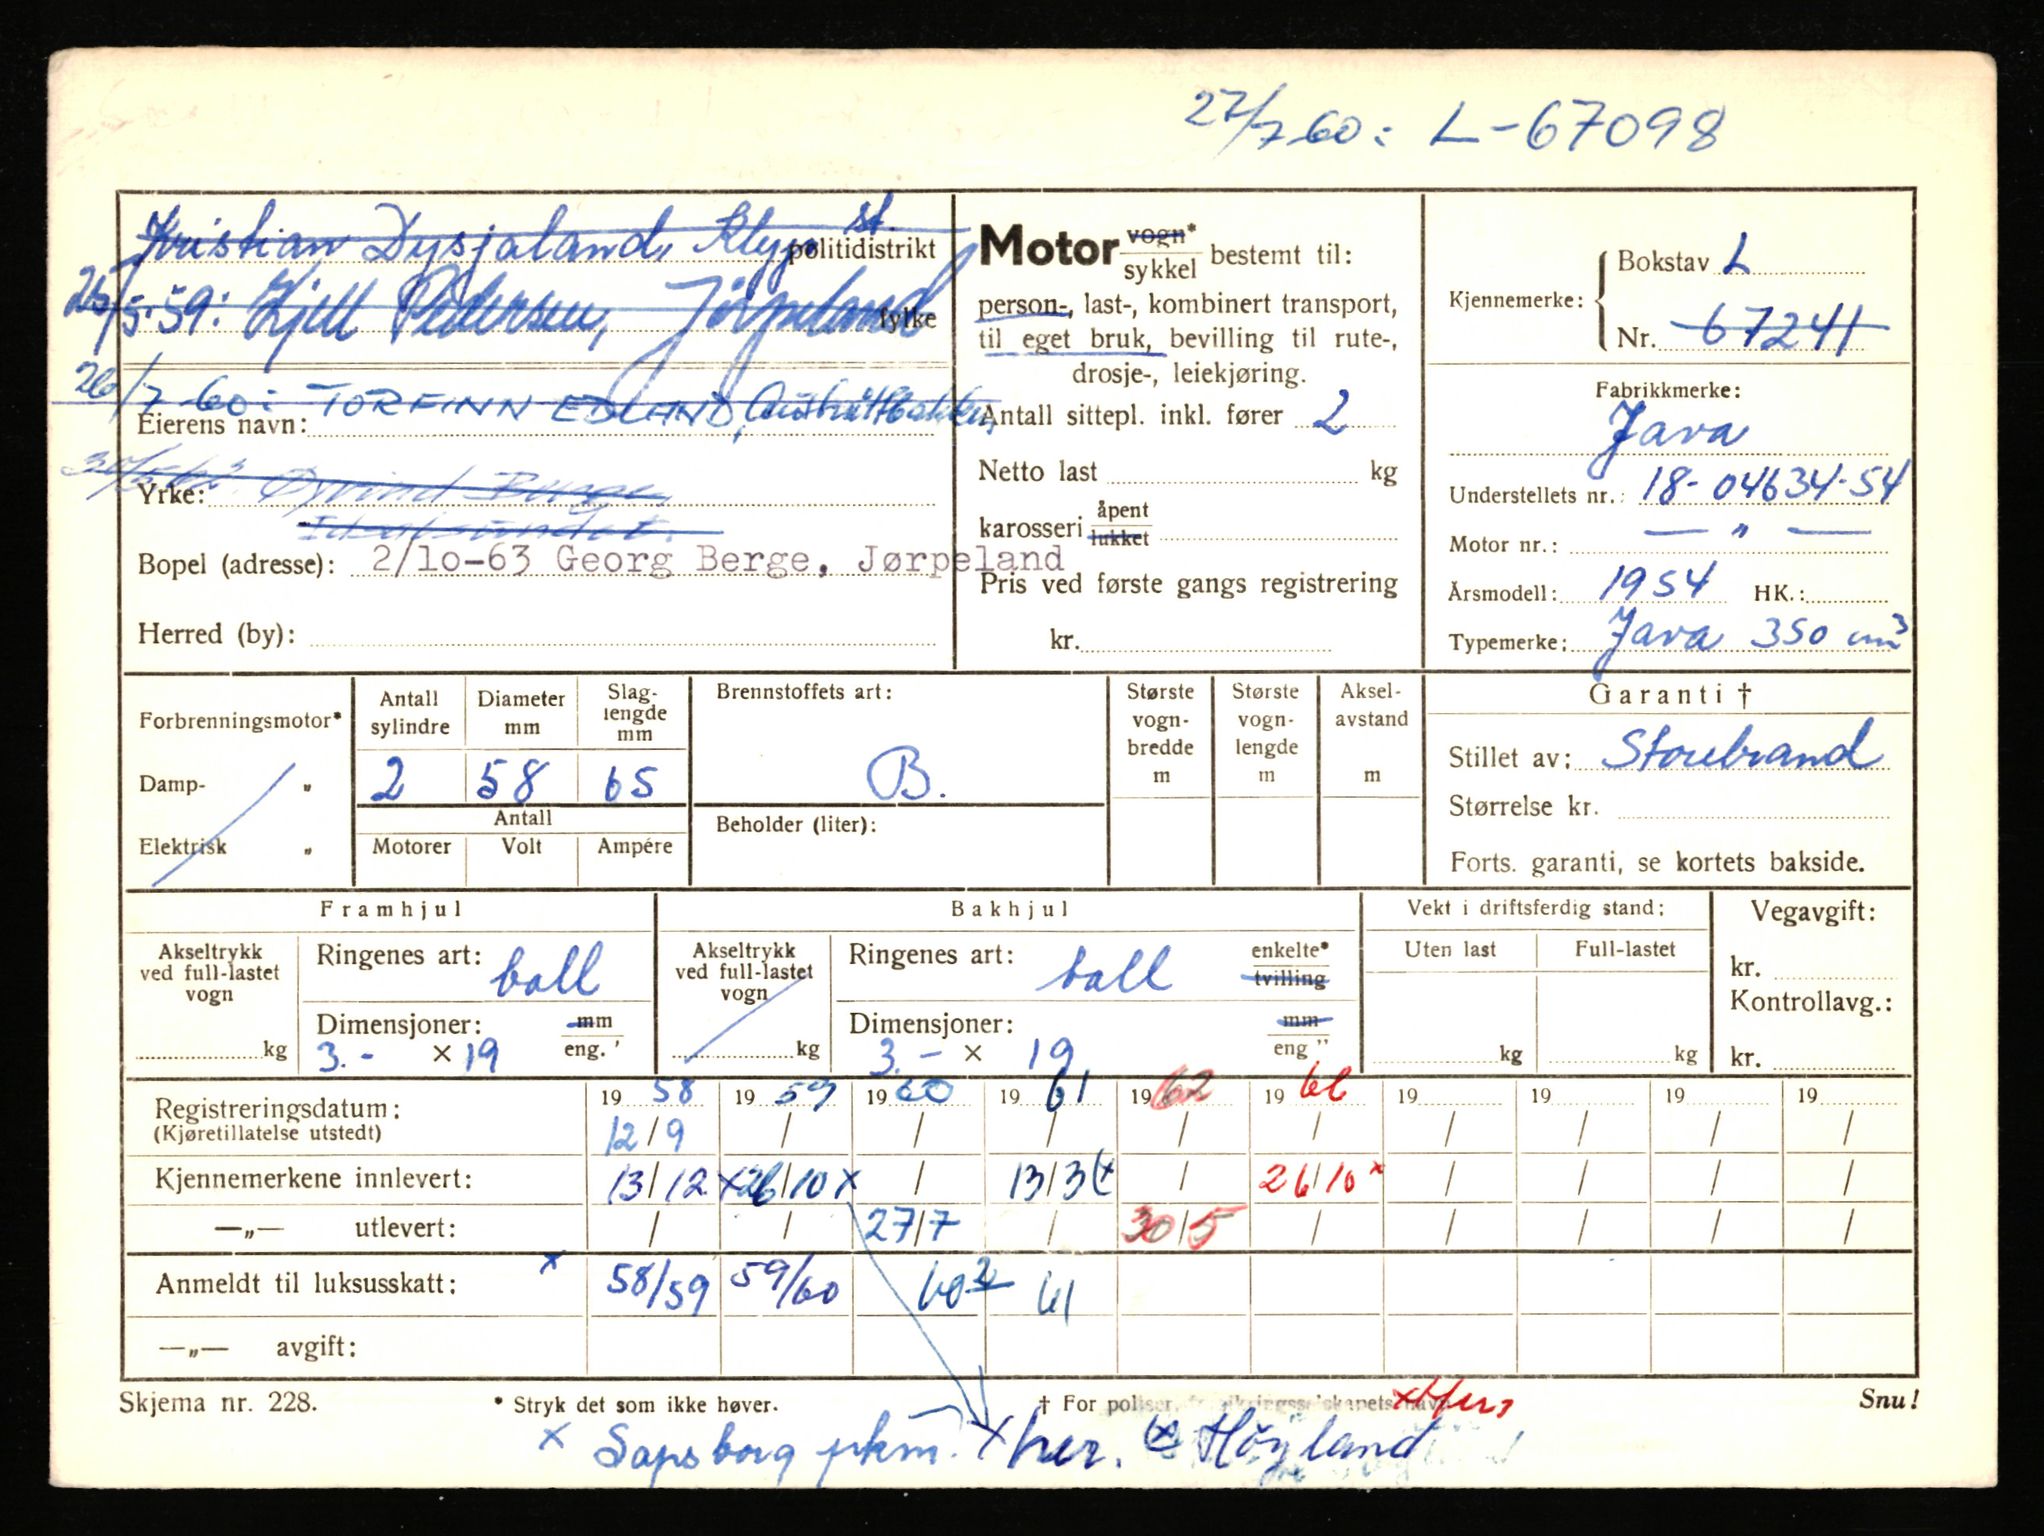 27/7 60: L-67098
Kristian Dysjaland, Klepp st. politidistrikt
25/5-59: Kjell Pedersen, Jørpeland fylke
26/7-60: TORFINN EDLAND, Austråttbakken,
Eierens navn:
30/5-62: Øyvind Burge,
Yrke:
Idsalsundet.
Bopel (adresse): 2/10-63 Georg Berge, Jørpeland
Herred (by):
Motor vogn* / sykkel bestemt til:
person-, last-, kombinert transport,
til eget bruk, bevilling til rute-,
drosje-, leiekjøring.
Antall sittepl. inkl. fører 2
Netto last kg
karosseri åpent / lukket
Pris ved første gangs registrering
kr.
Kjennemerke: Bokstav L
Nr. 67241
Fabrikkmerke:
Java
Understellets nr.: 18-04634-54
Motor nr.: — " —
Årsmodell: 1954 HK.:
Typemerke: Java 350 cm3
Forbrenningsmotor*
Damp- "
Elektrisk "
Antall sylindre Diameter mm Slag-lengde mm
2 58 65
Antall
Motorer Volt Ampére
Brennstoffets art:
B.
Beholder (liter):
Største vogn-bredde m
Største vogn-lengde m
Aksel-avstand m
Garanti †
Stillet av: Storebrand
Størrelse kr.
Forts. garanti, se kortets bakside.
Framhjul
Akseltrykk ved full-lastet vogn kg
Ringenes art: ball
Dimensjoner: mm / eng. '
3.- × 19
Bakhjul
Akseltrykk ved full-lastet vogn kg
Ringenes art: ball enkelte* / tvilling
Dimensjoner: mm / eng "
3.- × 19
Vekt i driftsferdig stand:
Uten last Full-lastet
kg kg
Vegavgift:
kr.
Kontrollavg.:
kr.
Registreringsdatum: 19 58 19 59 19 60 19 61 19 62 19 66 19 19 19 19
(Kjøretillatelse utstedt) 12/9 / / / / / / / / /
Kjennemerkene innlevert: 13/12 x 26/10 x / 13/3 (x / 26/10 x / / / /
—„— utlevert: / / 27/7 / 30/5 / / / / /
Anmeldt til luksusskatt: x 58/59 59/60 60 2 61
—„— avgift:
Skjema nr. 228. * Stryk det som ikke høver. † For poliser, forsikringsselskapets navn. Snu!
x Sapsborg pkm. x her. (x Höyland